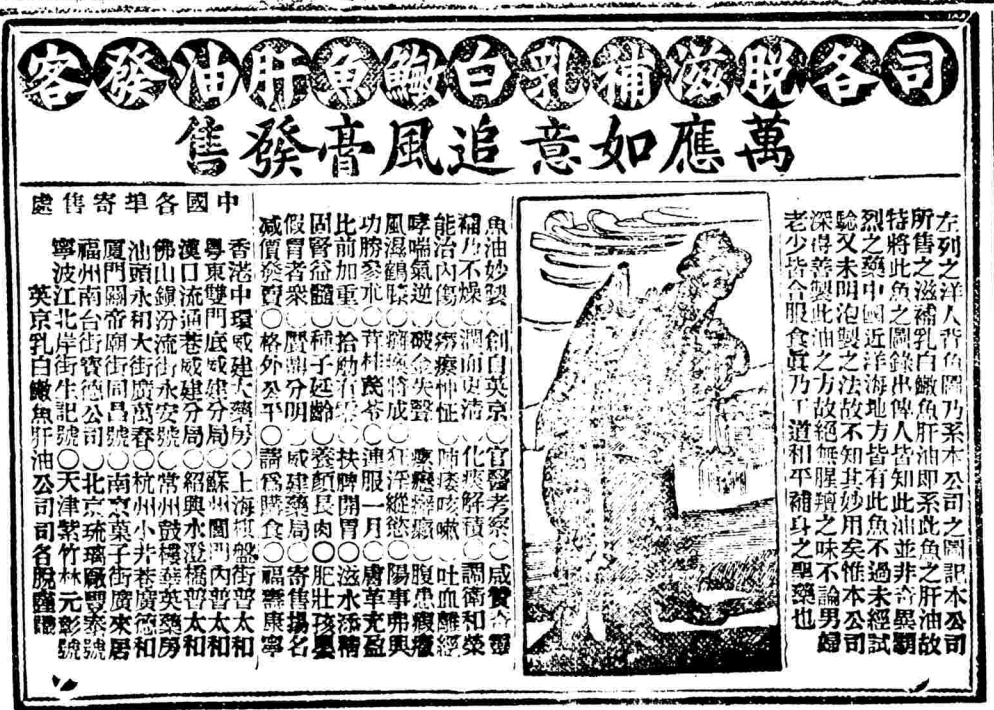 司各脱滋補乳白鰵魚肝油發客
萬應如意追風膏發售
左列之洋人背魚圖乃系本公司之圖記本公司
所售之滋補乳白鰵魚肝油即系此魚之肝油故
特將此魚之圖錄出俾人皆知此油並非奇異覇
烈之藥中國近洋海地方皆有此魚不過未經試
驗又未明泡製之法故不知其妙用矣惟本公司
深得善製此油之方故絕無腥羶之味不論男婦
老少皆合服食眞乃工道和平補身之聖藥也
魚油妙製○創自英京○官醫考察○咸贊奇靈
補乃不燥○潤而更清○化痰解積○調衛和榮
能治內傷○癆瘵怔○肺痿咳嗽○吐血離經
哮喘氣逆○破金失聲○癧癬癲○腹患瘕癥
風濕鶴膝○癱瘓將成○狂淫縱慾○陽事弗興
功勝參朮○茸桂芪苓○連服一月○膚革充盈
比前加重○拾觔有零○扶脾開胃○滋水添精
固腎益髓○種子延齡○養顏長肉○肥壯孩嬰
假冒者衆○鼎分明○威建藥局○寄售揚名
减價發賣○格外公平○請爲購食○福壽康寧
中國各埠寄售處
香港中環威建大藥房○上海棋盤街普太和
粤東雙門底威建分局○蘇州閶門內普太和
漢口流通巷威建分局○紹興水澄橋普太和
佛山鎮汾流街永安號○常州鼓樓華英藥房
汕頭永和大街廣萬春○杭州小井巷廣德和
厦門關帝廟街同昌號○南京菓子街廣來居
福州南台街寳德公司○北京琉璃廠豐泰號
寧波江北岸街生記號○天津紫竹林元彰號
英京乳白鰵魚肝油公司司各脱謹識